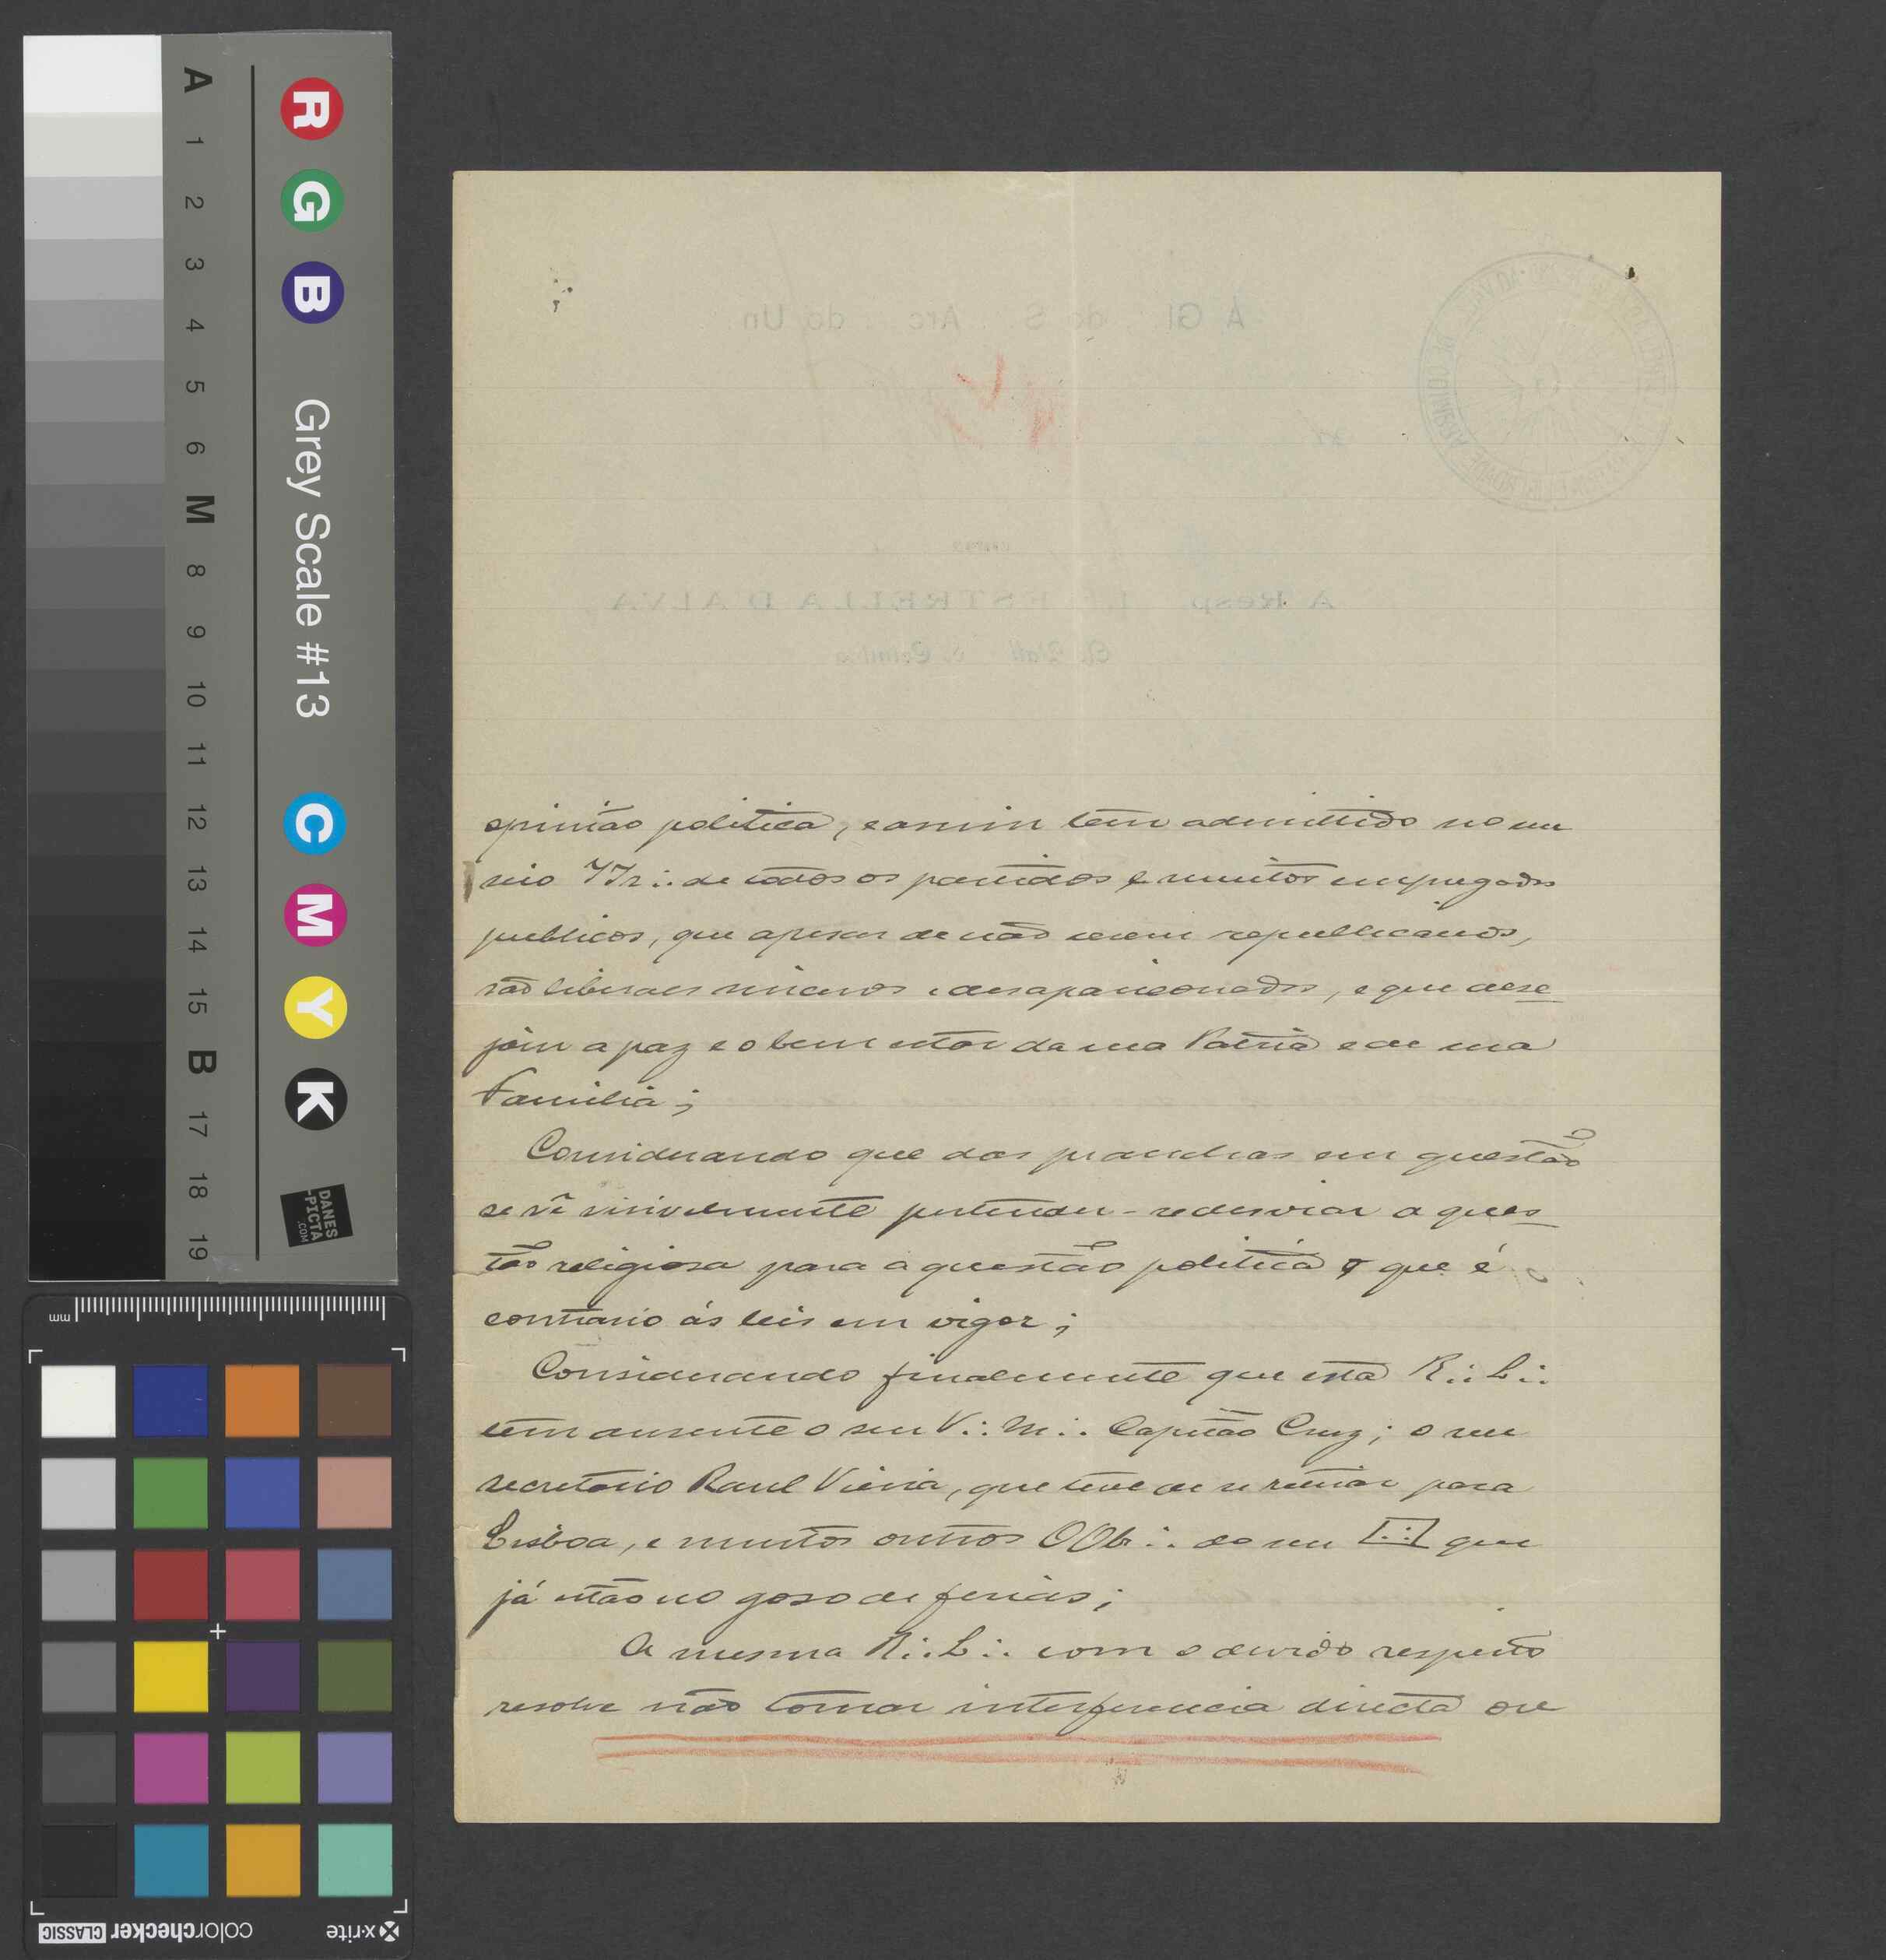 A
1
2
3
4
5
6
M
8
9
10
11
12
13
14
15
B
17
18
19
R G B
Grey Scale #13
C M Y K
DANES
-PICTA
.COM
mm
colorchecker CLASSIC
x-rite
A Gl do S. Arc. do Un
A Resp. L ESTRELLA D'ALVA
opinião politica, e assim tem admittido no seu
seio IIr∴ de todos os partidos e muitos empregados
publicos, que apesar de não serem republicanos,
são liberaes sinceros e desapaixonados, e que dese
jam a paz e o bem estar da sua Patria e de sua
Familia;
Considerando que das pranchas em questão
se vê visivelmente pretender-se desviar a ques
tão religiosa para a questão politica o que é
contrario ás leis em vigor;
Considerando finalmente que esta R∴ L∴
tem ausente o seu V∴ M∴ Capitão Cruz; o seu
secretario Raul Vieira, que teve de se retirar para
Lisboa, e muitos outros OOb∴ do seu [∴] que
já estão no goso de ferias;
A mesma R∴ L∴ com o devido respeito
resolve não tomar interferencia directa ou